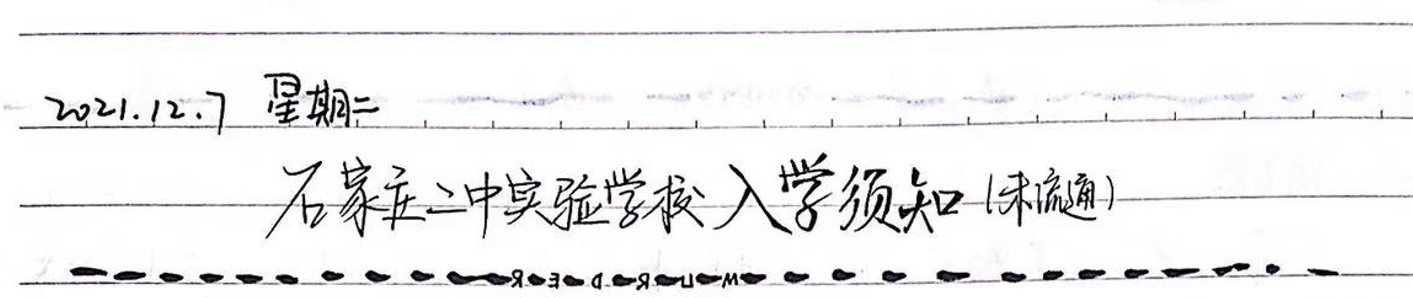 2021.12.7 星期二
石家庄二中实验学校入学须知(未流通)